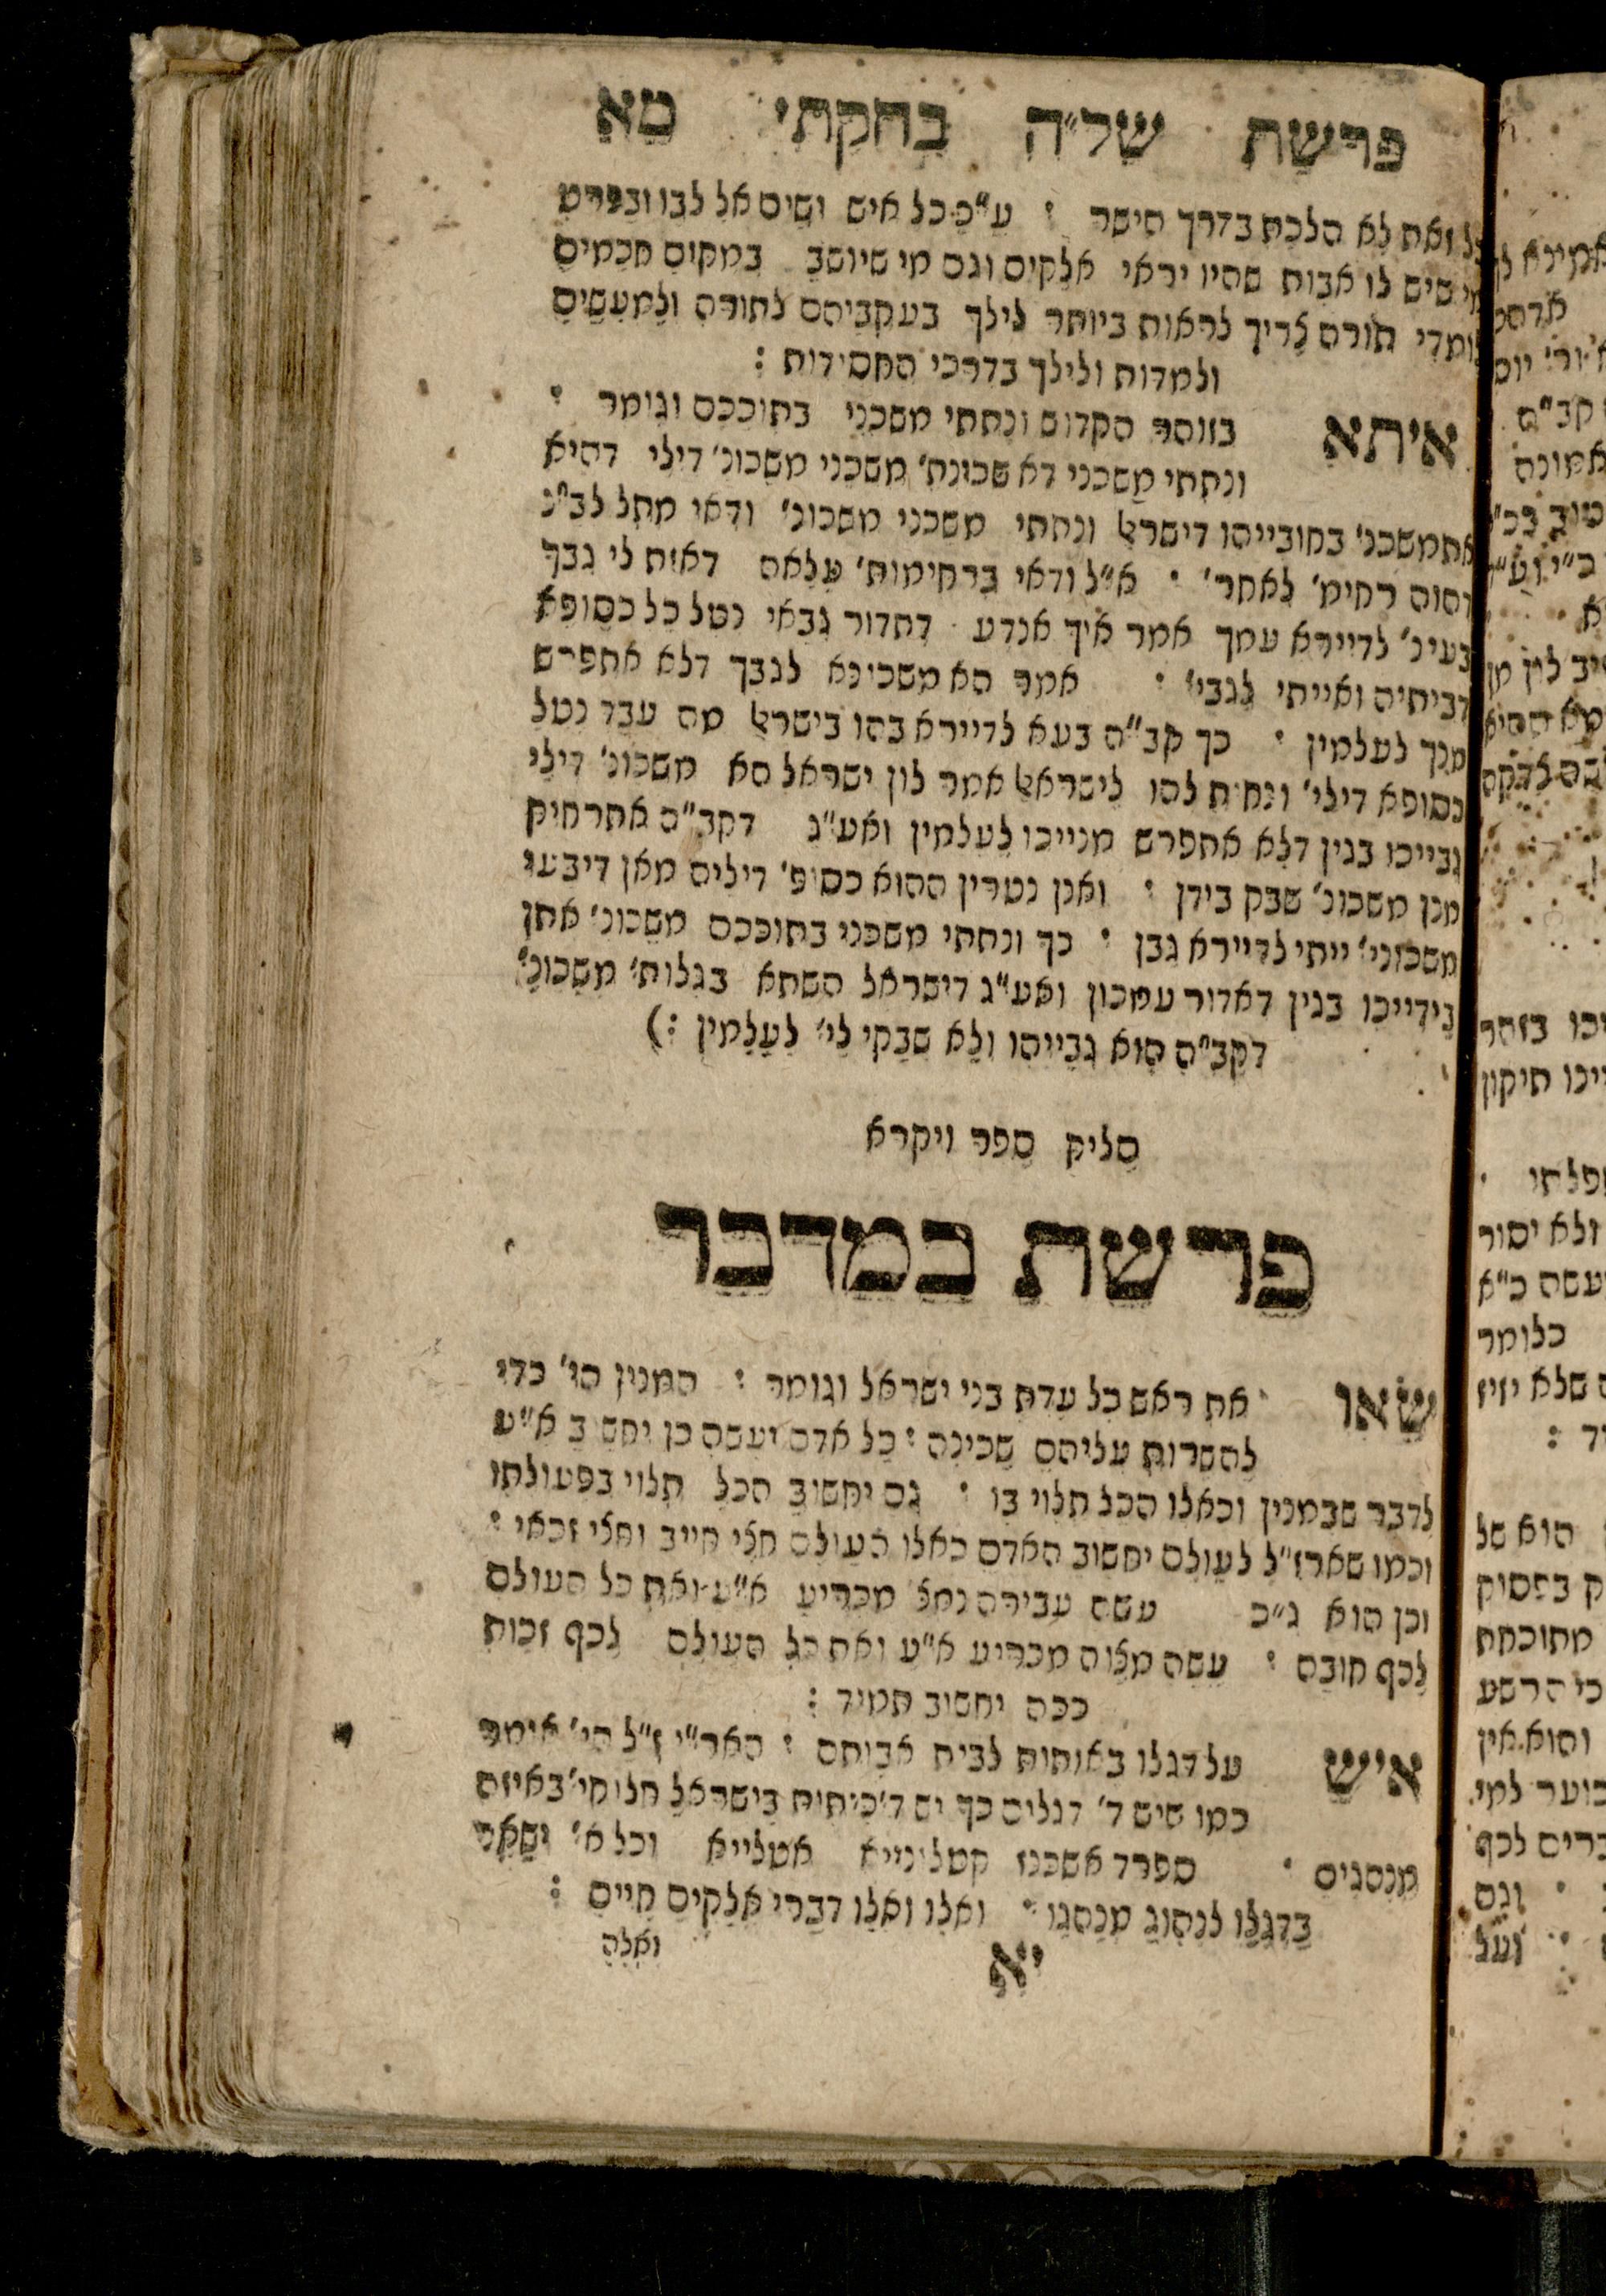 פרשת של״ה בחקתי מא
כל זאת לא הלכת בדרך הישר : ע״כ כל איש ישים אל לבו ובפרט
מי שיש לו אבות שהיו יראי אלקים וגם מי שיושב במקום חכמים
לומדי תורה צריך לראות ביותר לילך בעקביהם לתורה ולמעשים
ולמדות ולילך בדרכי החסידות :
איתא בזוהר הקדוש ונתתי משכני בתוככם וגומר :
ונתתי משכני דא שכונת׳ משכני משכונ׳ דילי דהיא
אתמשכנ׳ בחובייהו דישראל ונתתי משכני משכונ׳ ודאי מתל לב״נ
דהוה רחימ׳ לאחר׳ : א״ל ודאי ברחימות׳ עלאה דאית לי גבך
בעינ׳ לדיירא עמך אמר איך אנדע דתדור גבאי נטל כל כסופא
דביתיה ואייתי לגבי׳ : אמר הא משכינא לגבך דלא אתפרש
מנך לעלמין : כך קב״ה בעא לדיירא בהו בישראל מה עבד נטל
כסופא דילי׳ ונחית להו לישראל אמר לון ישראל הא משכונ׳ דילי
גבייכו בגין דלא אתפרש מנייכו לעלמין ואע״ג דקב״ה אתרחיק
מנן משכונ׳ שבק בידן : ואנן נטרין ההוא כסופ׳ דיליה מאן דיבעי
משכוני׳ ייתי לדיירא גבן : כך ונתתי משכני בתוככם משכונ׳ אתן
בידייכו בגין דאדור עמכון ואע״ג דישראל השתא בגלות׳ משכונ׳
דקב״ה הוא גבייהו ולא שבקי לי׳ לעלמין :)
סליק ספר ויקרא
פרשת במדבר
שאו את ראש כל עדת בני ישראל וגומר : המנין הי׳ כדי
להשרות עליהם שכינה : כל אדם יעשה כן יחשב א״ע
לדבר שבמנין וכאלו הכל תלוי בו : גם יחשיב הכל תלוי בפעולתו
וכמו שארז״ל לעולם יחשוב האדם כאלו העולם חצי חייב וחצי זכאי :
וכן הוא ג״כ עשה עבירה נמצ׳ מכריע א״ע ואת כל העולם
לכף חובה : עשה מצוה מכריע א״ע ואת כל העולם לכף זכות
ככה יחשוב תמיד :
איש על דגלו באותות לבית אבותם : האר״י ז״ל הי׳ אומר
כמו שיש ד׳ דגלים כך יש ד׳ כיתות בישראל חלוקי׳ באיזה
מנהגים : ספרד אשכנז קטלוניא אטלייא וכל א׳ ישאר
בדגלו לנהוג מנהגו : ואלו ואלו דברי אלקים חיים :
יא ואלה